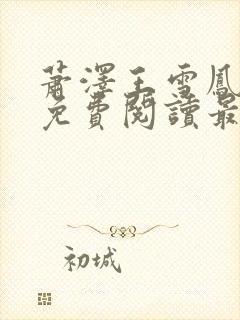 蕭澤王雪鳳
免費閱讀最
初城